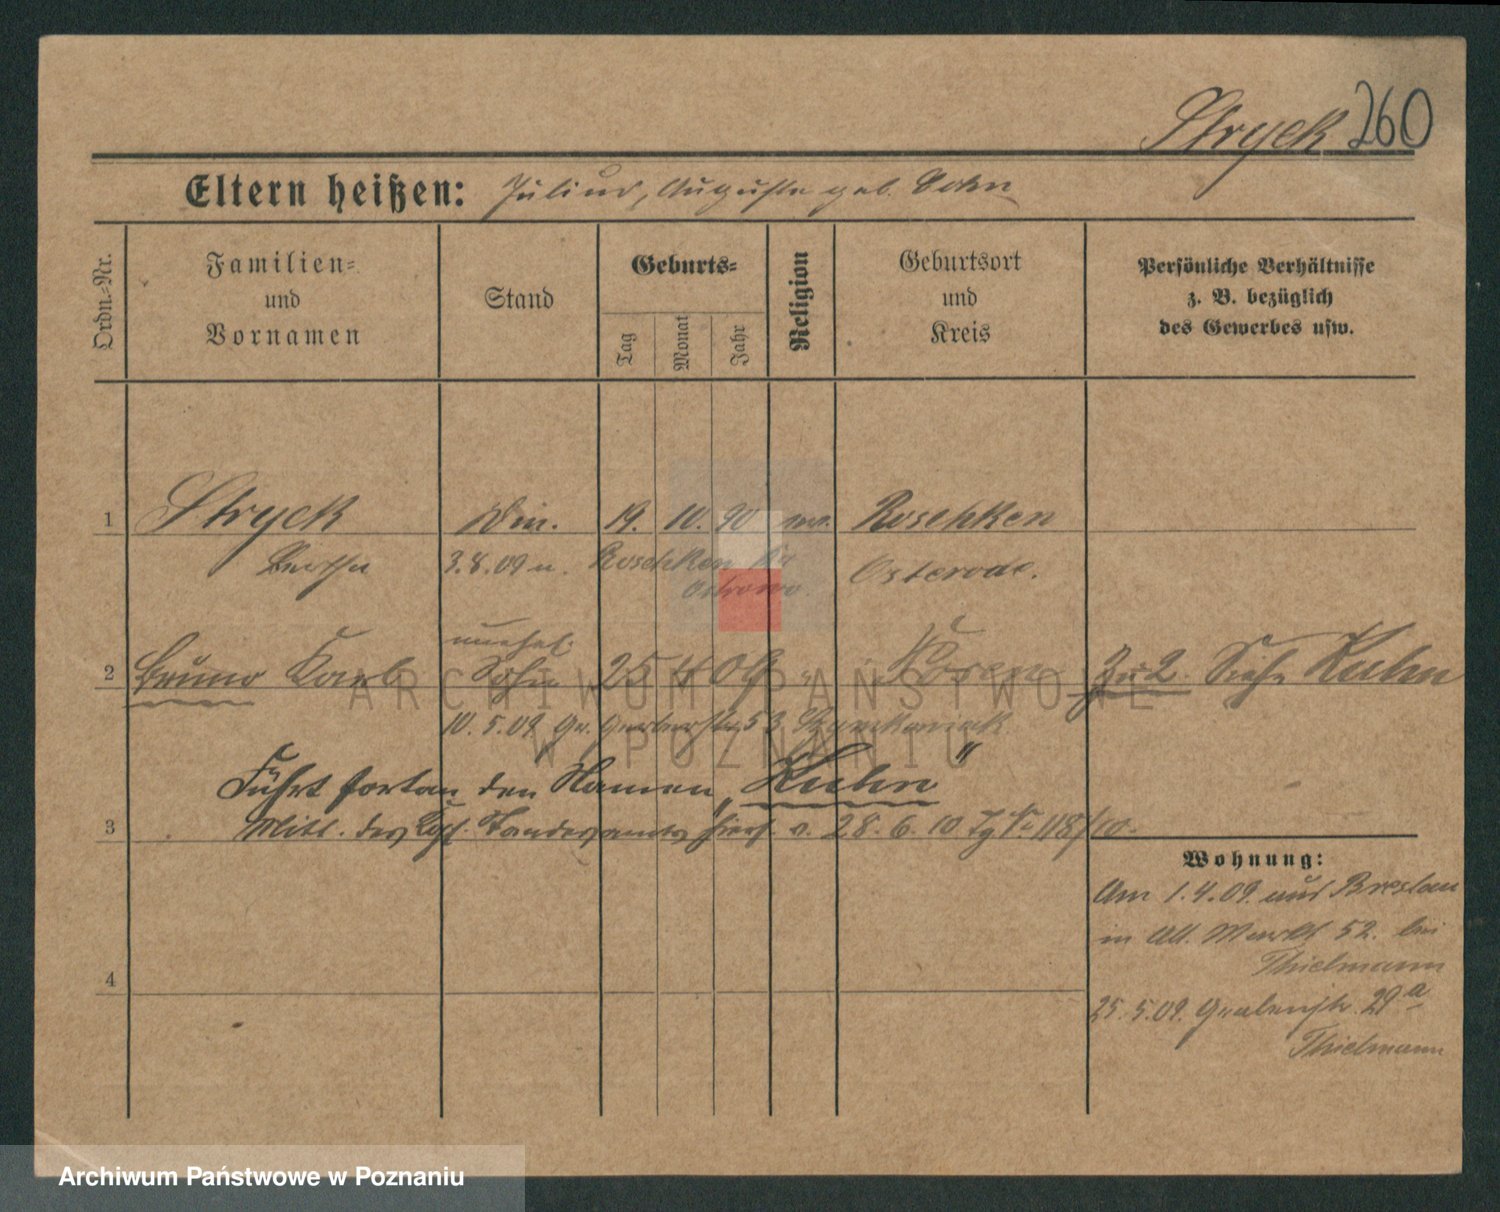 Stryek 260
Eltern heißen: Julius, Auguste geb.
Ordn.-Nr.
Familien-
und
Vornamen
Stand
Geburts-
Tag
Monat
Jahr
Religion
Geburtsort
und
Kreis
Persönliche Verhältnisse
z. B. bezüglich
des Gewerbes usw.
1 Stryek 19. 10. 90 Roschken
Bertha 3.8.09 n. Roschken Kr. Osterode.
Ostrowo.
unehel.
2 Bruno Karl Sohn 25 4 09 " Posen Zu 2. Siehe Kuhn
10.5.09 Gr. Gerberstr. 53
Führt fortan den Namen „Kuhn"
3 Mitt. des Kgl. Standesamts hier v. 28. 6. 10 118/10.
Wohnung:
Am 1.4.09. aus Breslau
in Alt. Markt 52. bei
Thielmann
4
25.5.09. Grabenstr. 29a
Thielmann
ARCHIWUM PAŃSTWOWE
W POZNANIU
Archiwum Państwowe w Poznaniu